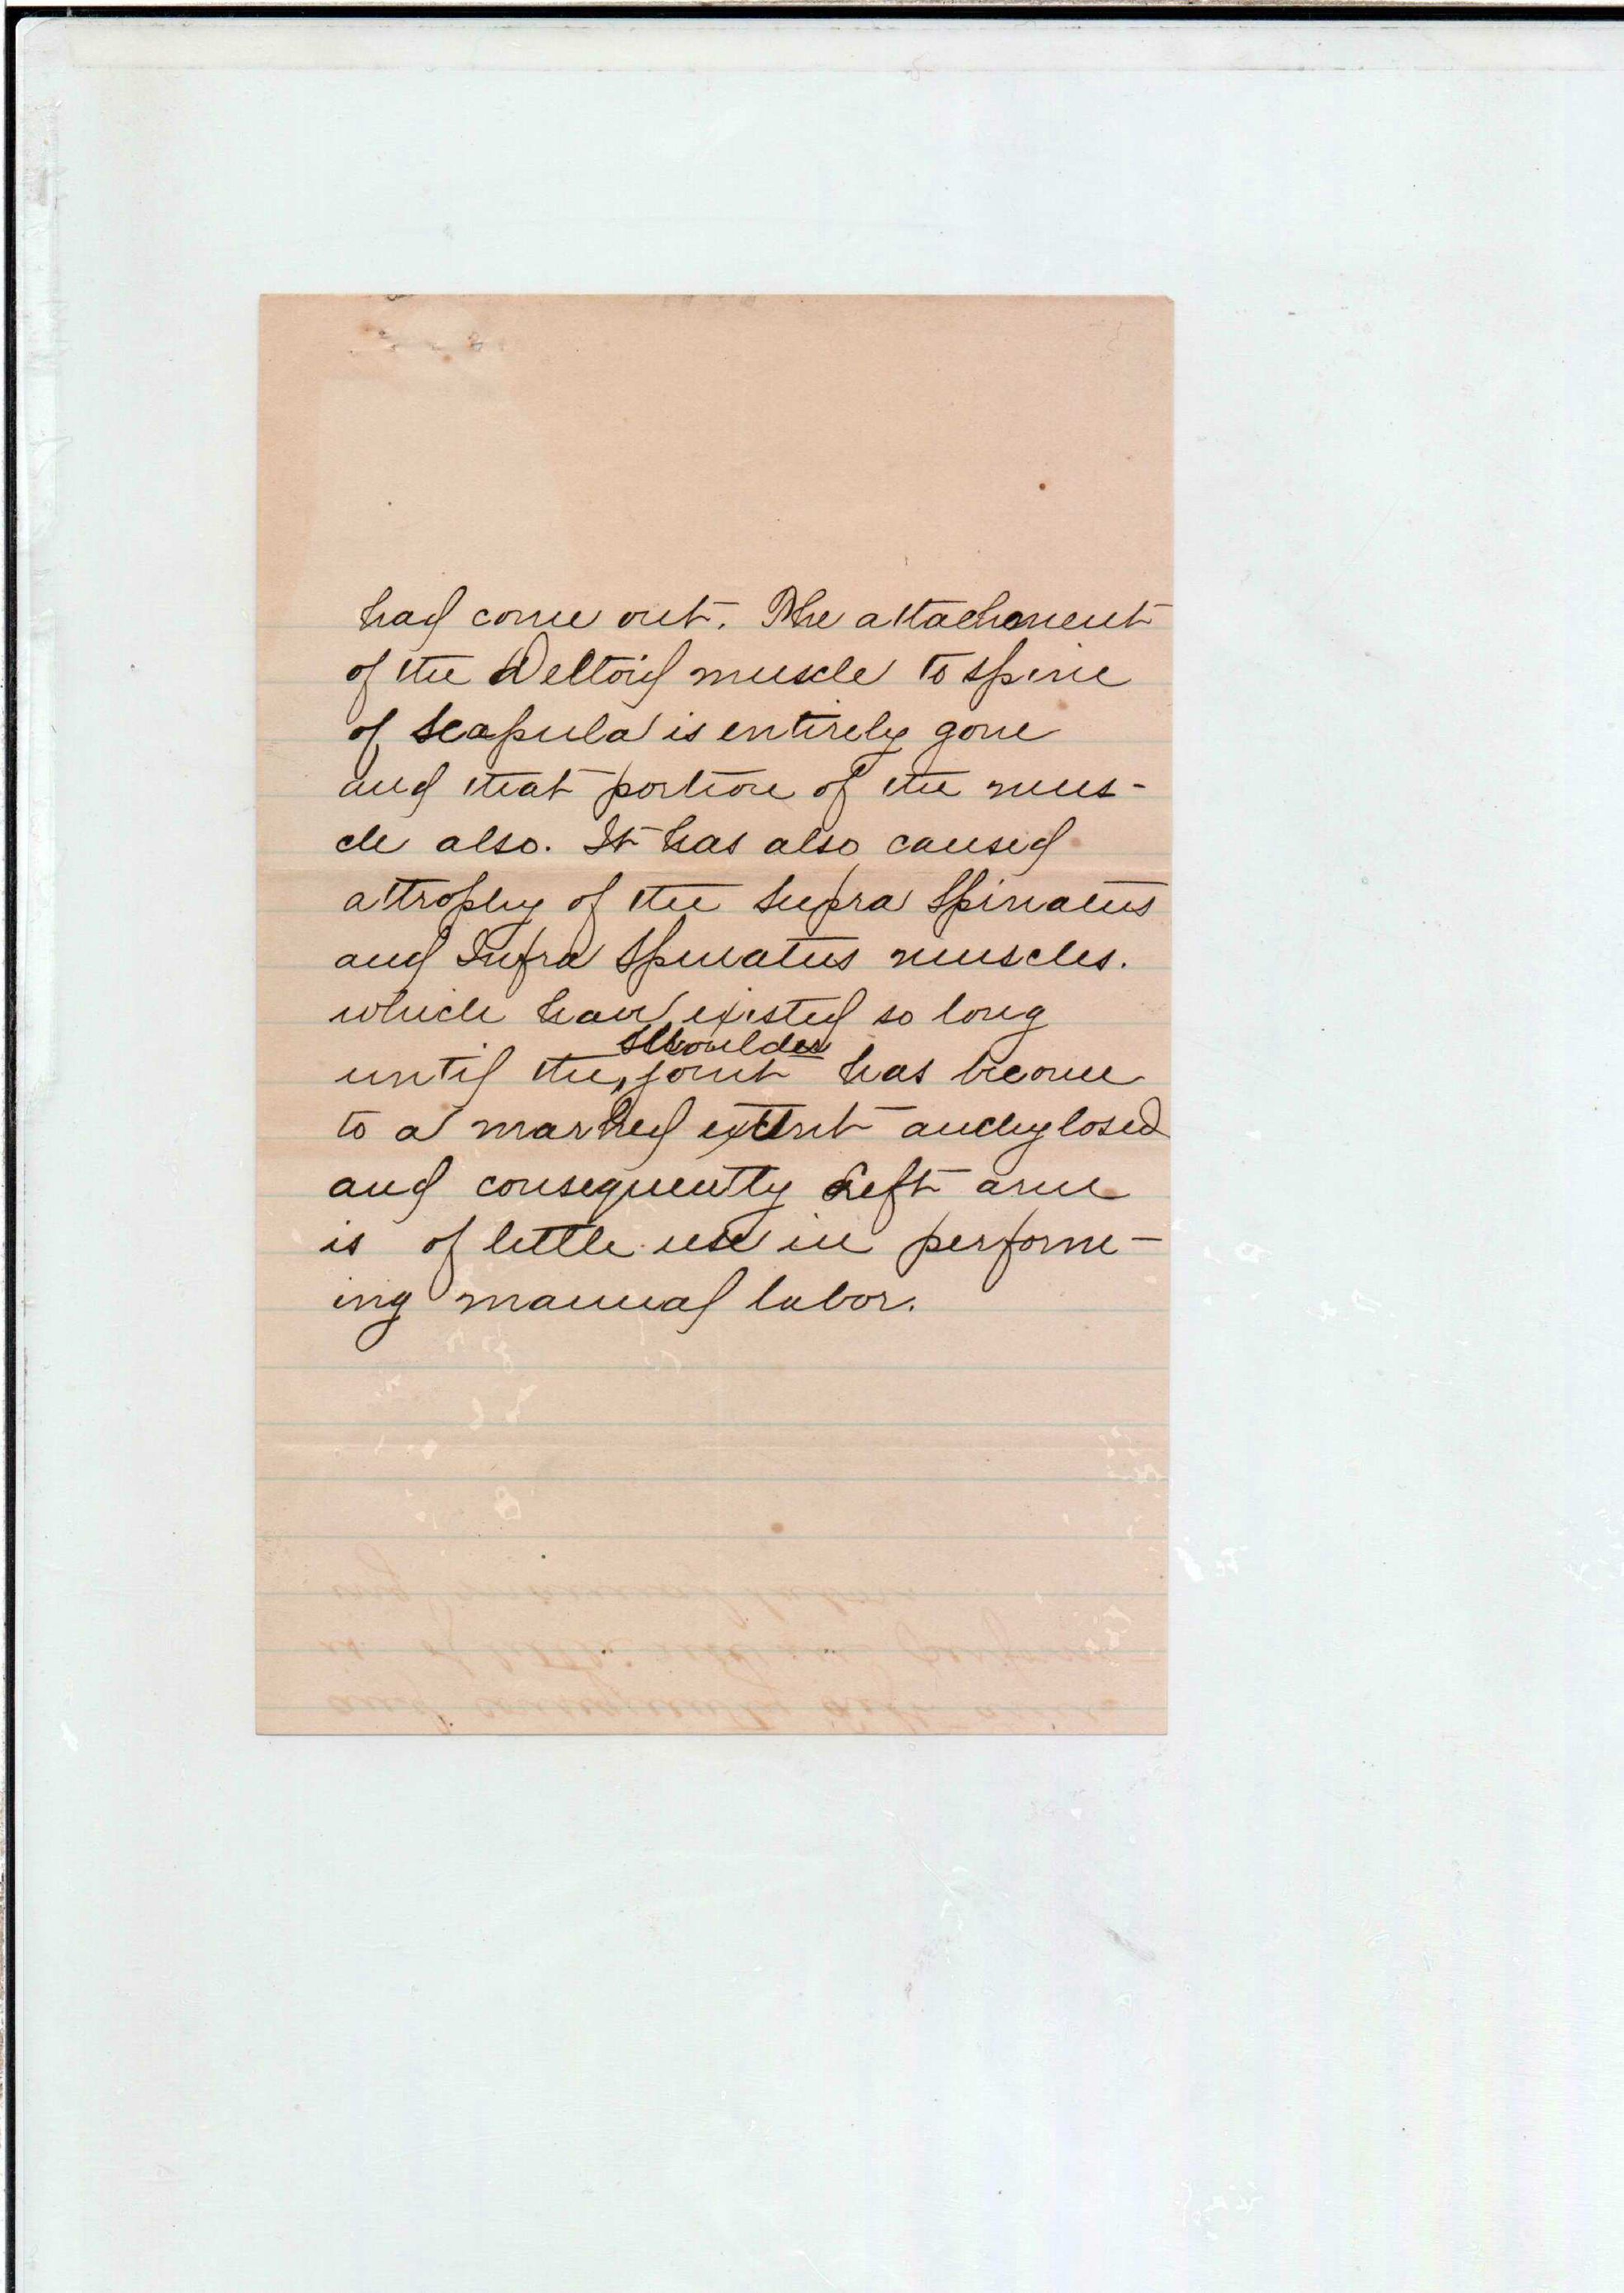 had come out. The attachement
of the Deltoid muscle to spine
of Scapula is entirely gone
and that portion of the mus-
cle also. It has also caused
attrophy of the Supra Spinatus
and Infra Spinatus muscles.
which have existed so long
shoulder
until the joint has become
to a marked extent anchylosed
and consequently Left arm
is of little use in perform-
ing manual labor.